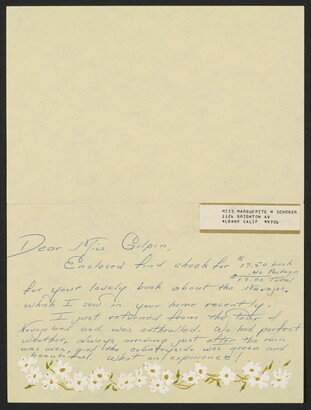 MISS MARGUERITE M SCHOBER
1126 BRIGHTON AV
ALBANY CALIF 94706
Dear Miss Gilpin,
Enclosed find check for $17.50 book
for your lovely book about the Navajos.
which I saw in your home recently.
I just returned from the tour of
Navajoland and was enthralled. We had perfect
weather, always arriving just after the rain
was over and the countryside was green and
beautiful. What an experience!